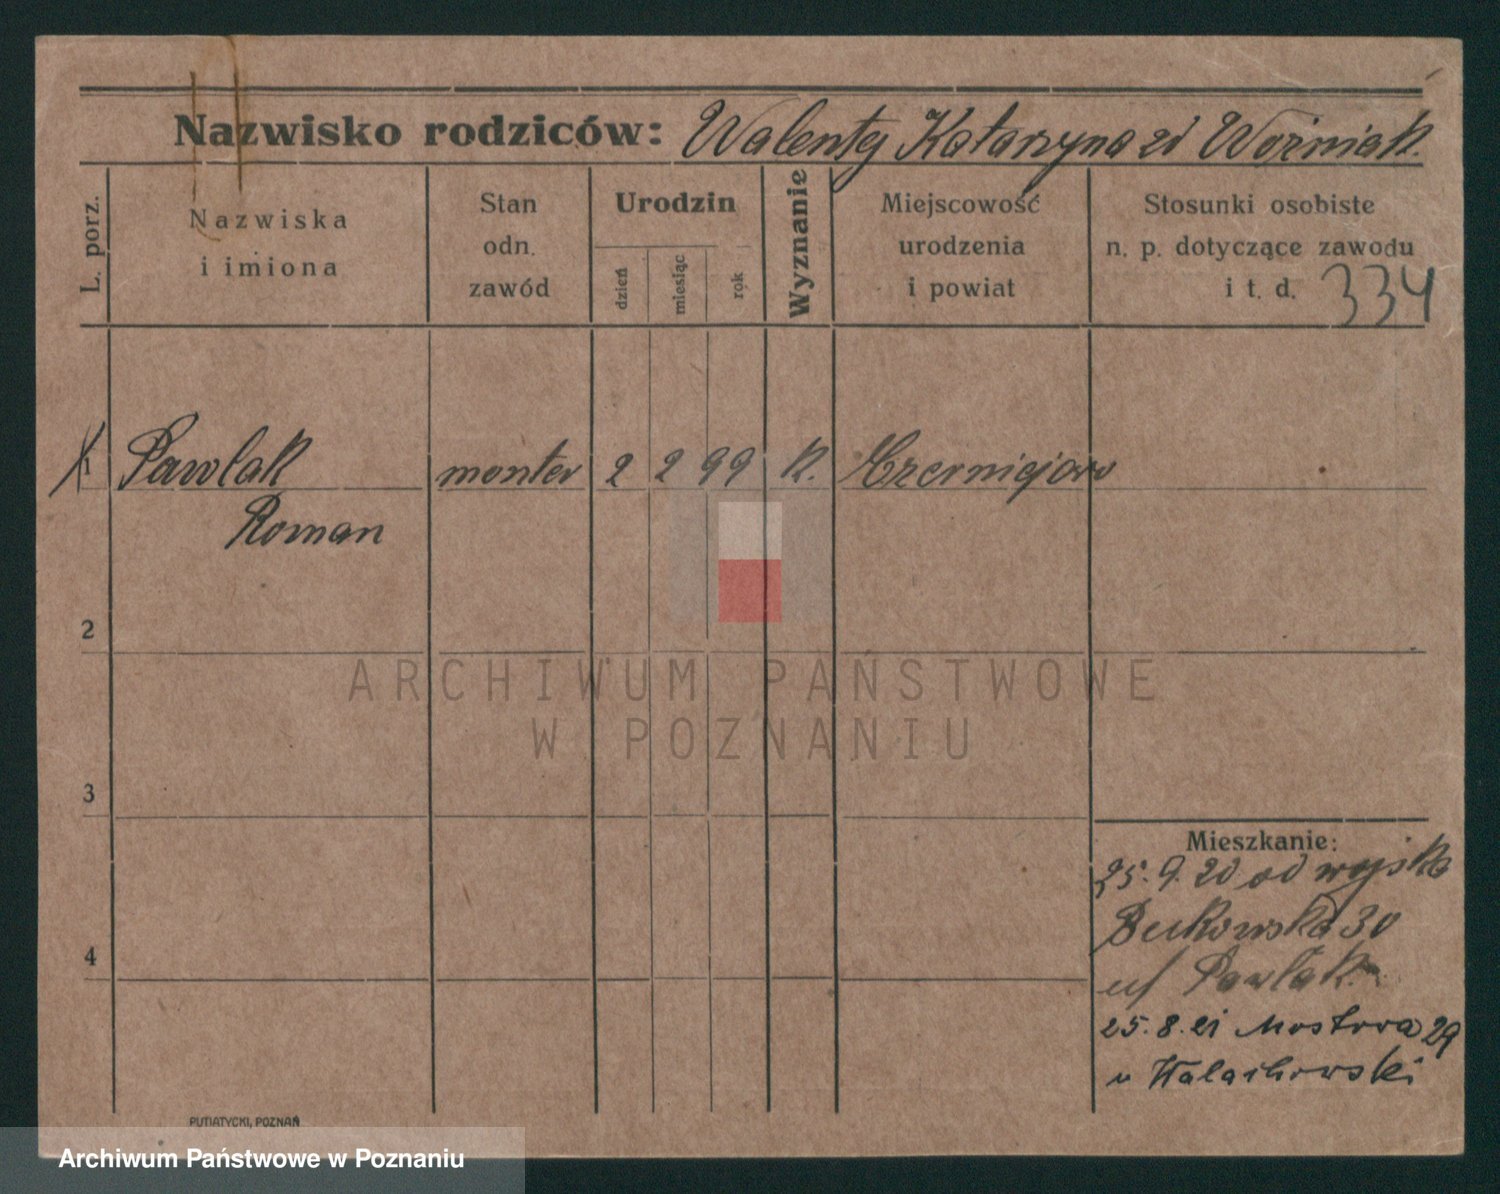 Nazwisko rodziców: Walenty Katarzyna zd Woźniak.
L. porz.
Nazwiska
i imiona
Stan
odn.
zawód
Urodzin
dzień
miesiąc
rok
Wyznanie
Miejscowość
urodzenia
i powiat
Stosunki osobiste
n. p. dotyczące zawodu
i t. d. 334
1 Pawlak monter 2 2 99 k. Czerniejewo
Roman
2
ARCHIWUM PAŃSTWOWE
W POZNANIU
3
Mieszkanie:
25.9.20 od wojska
Bukowska 30
u/ Pawlak
4
25.8.21 Mostowa 29
u
PUTIATYCKI, POZNAŃ
Archiwum Państwowe w Poznaniu